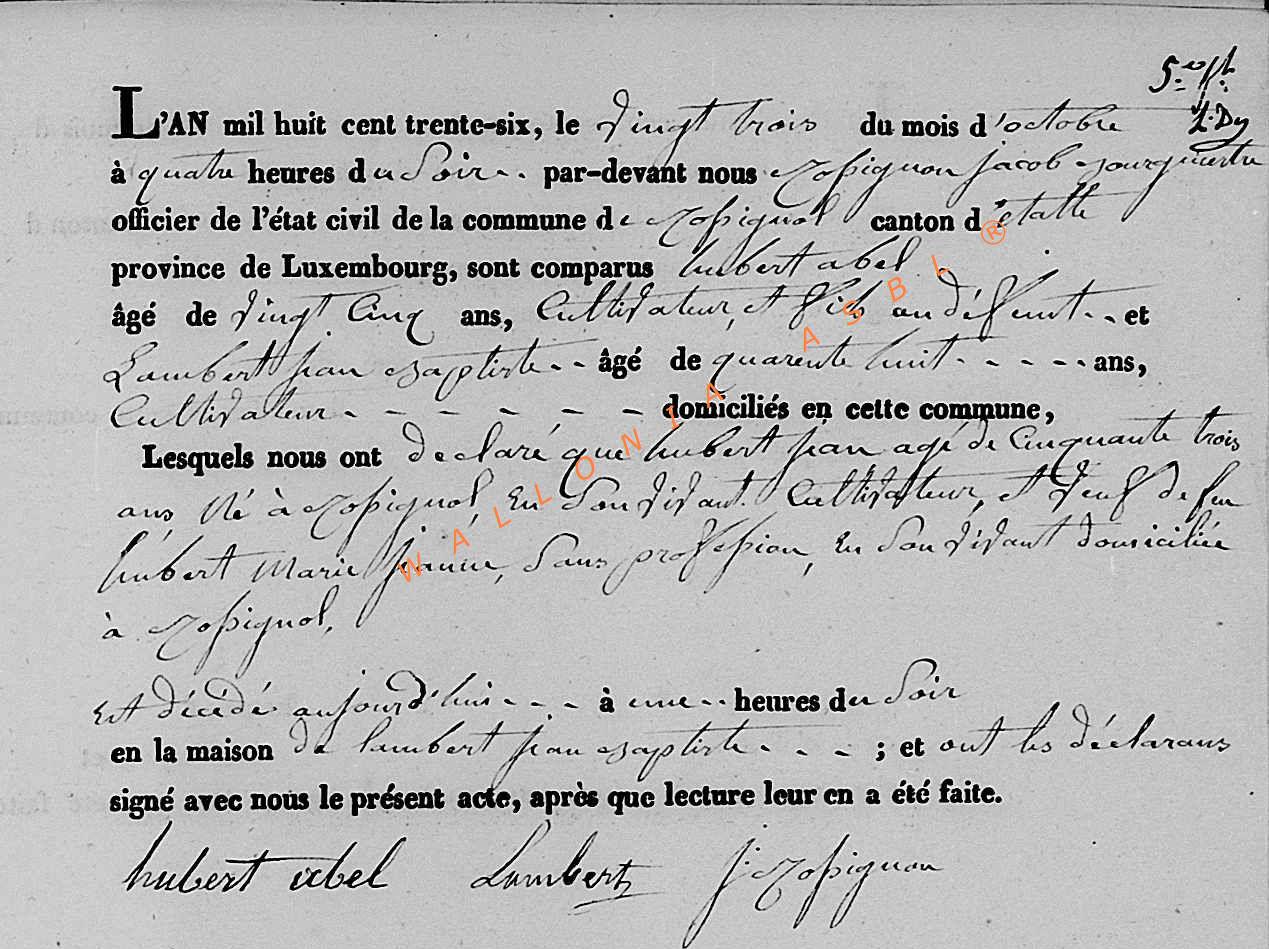 L'AN mil huit cent trente-six, le vingt trois du mois d'octobre
à quatre heures du Soir par-devant nous Rossignon jacob Bourgmestre
officier de l'état civil de la commune de Rossignol canton d'etalle
province de Luxembourg, sont comparus hubert abel
âgé de vingt Cinq ans, Cultivateur, et fils au défunt et
Lambert jean Baptiste âgé de quarente huit ans,
Cultivateur domiciliés en cette commune,
Lesquels nous ont declaré que hubert jean agé de Cinquante trois
ans, Né à Rossignol, En Son vivant Cultivateur, et veuf de feu
hubert Marie jeanne, Sans profession, En Son vivant domiciliée
à Rossignol,
Est décédé aujourd'hui à une heures du Soir
en la maison de lambert jean Baptiste ; et ont les déclarans
signé avec nous le présent acte, après que lecture leur en a été faite.
hubert abel Lambert j. Rossignon
WALLONIA ASBL ®